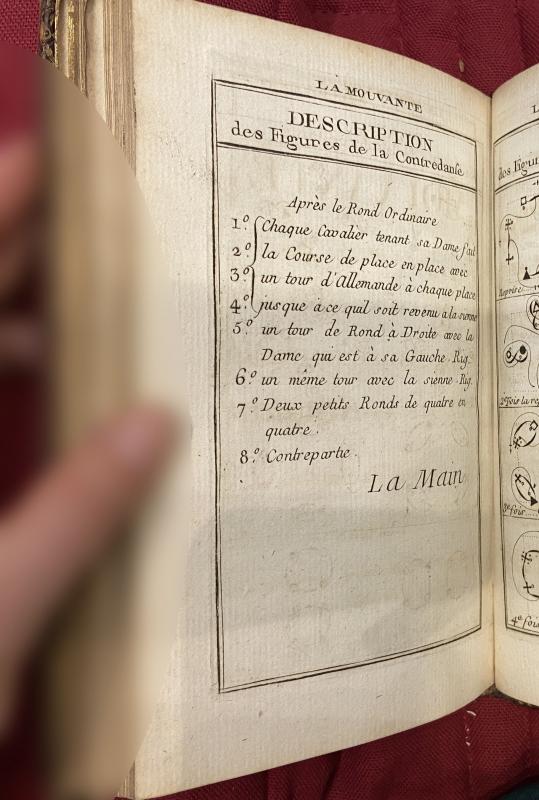 LA MOUVANTE
DESCRIPTION
des Figures de la Contredanse
Après le Rond Ordinaire
1.º Chaque Cavalier tenant sa Dame fait
2.º la Course de place en place avec
3.º un tour d'Allemande à chaque place
4.º jusque a ce qual soit revenu a la sienne
5.º un tour de Rond à Droite avec la
Dame qui est à sa Gauche Rig.
6.º un même tour avec la sienne Rig.
7.º Deux petits Ronds de quatre en
quatre.
8.º Contrepartie.
La Main
des Figur
Reprise
2.e Fois la re
3.e fois
4.e fois